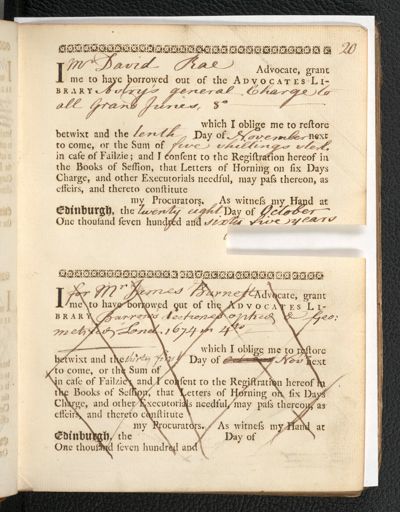 20
I Mr David Rae Advocate, grant
me to have borrowed out of the ADVOCATES LI-
BRARY general Charge to
all Grand Juries, 8o
which I oblige me to restore
betwixt and the tenth Day of November next
to come, or the Sum of five shillings sterl.
in case of Failzie; and I consent to the Registration hereof in
the Books of Session, that Letters of Horning on six Days
Charge, and other Executorials needful, may pass thereon, as
effeirs, and thereto constitute
my Procurators. As witness my Hand at
Edinburgh, the twenty eight Day of October
One thousand seven hundred and sixty five years
I for Mr James Burnett Advocate, grant
me to have borrowed out of the ADVOCATES LI-
BRARY Barrow Lectiones opticæ & geo:
metricæ Lond. 1674 in 4to
which I oblige me to restore
betwixt and the thirty first Day of Nov next
to come, or the Sum of
in case of Failzie; and I consent to the Registration hereof in
the Books of Session, that Letters of Horning on six Days
Charge, and other Executorials needful, may pass thereon, as
effeirs, and thereto constitute
my Procurators. As witness my Hand at
Edinburgh, the Day of
One thousand seven hundred and